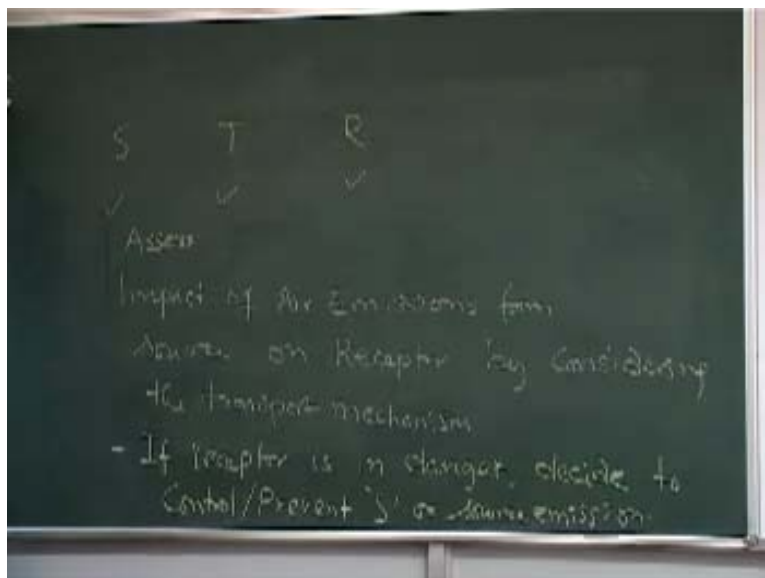 S T R
✓ ✓ ✓
Assess
Impact of Air Emissions from
source on Receptor by considering
the transport mechanism
- If receptor is in danger, decide to
Control/Prevent 'S' or source emission